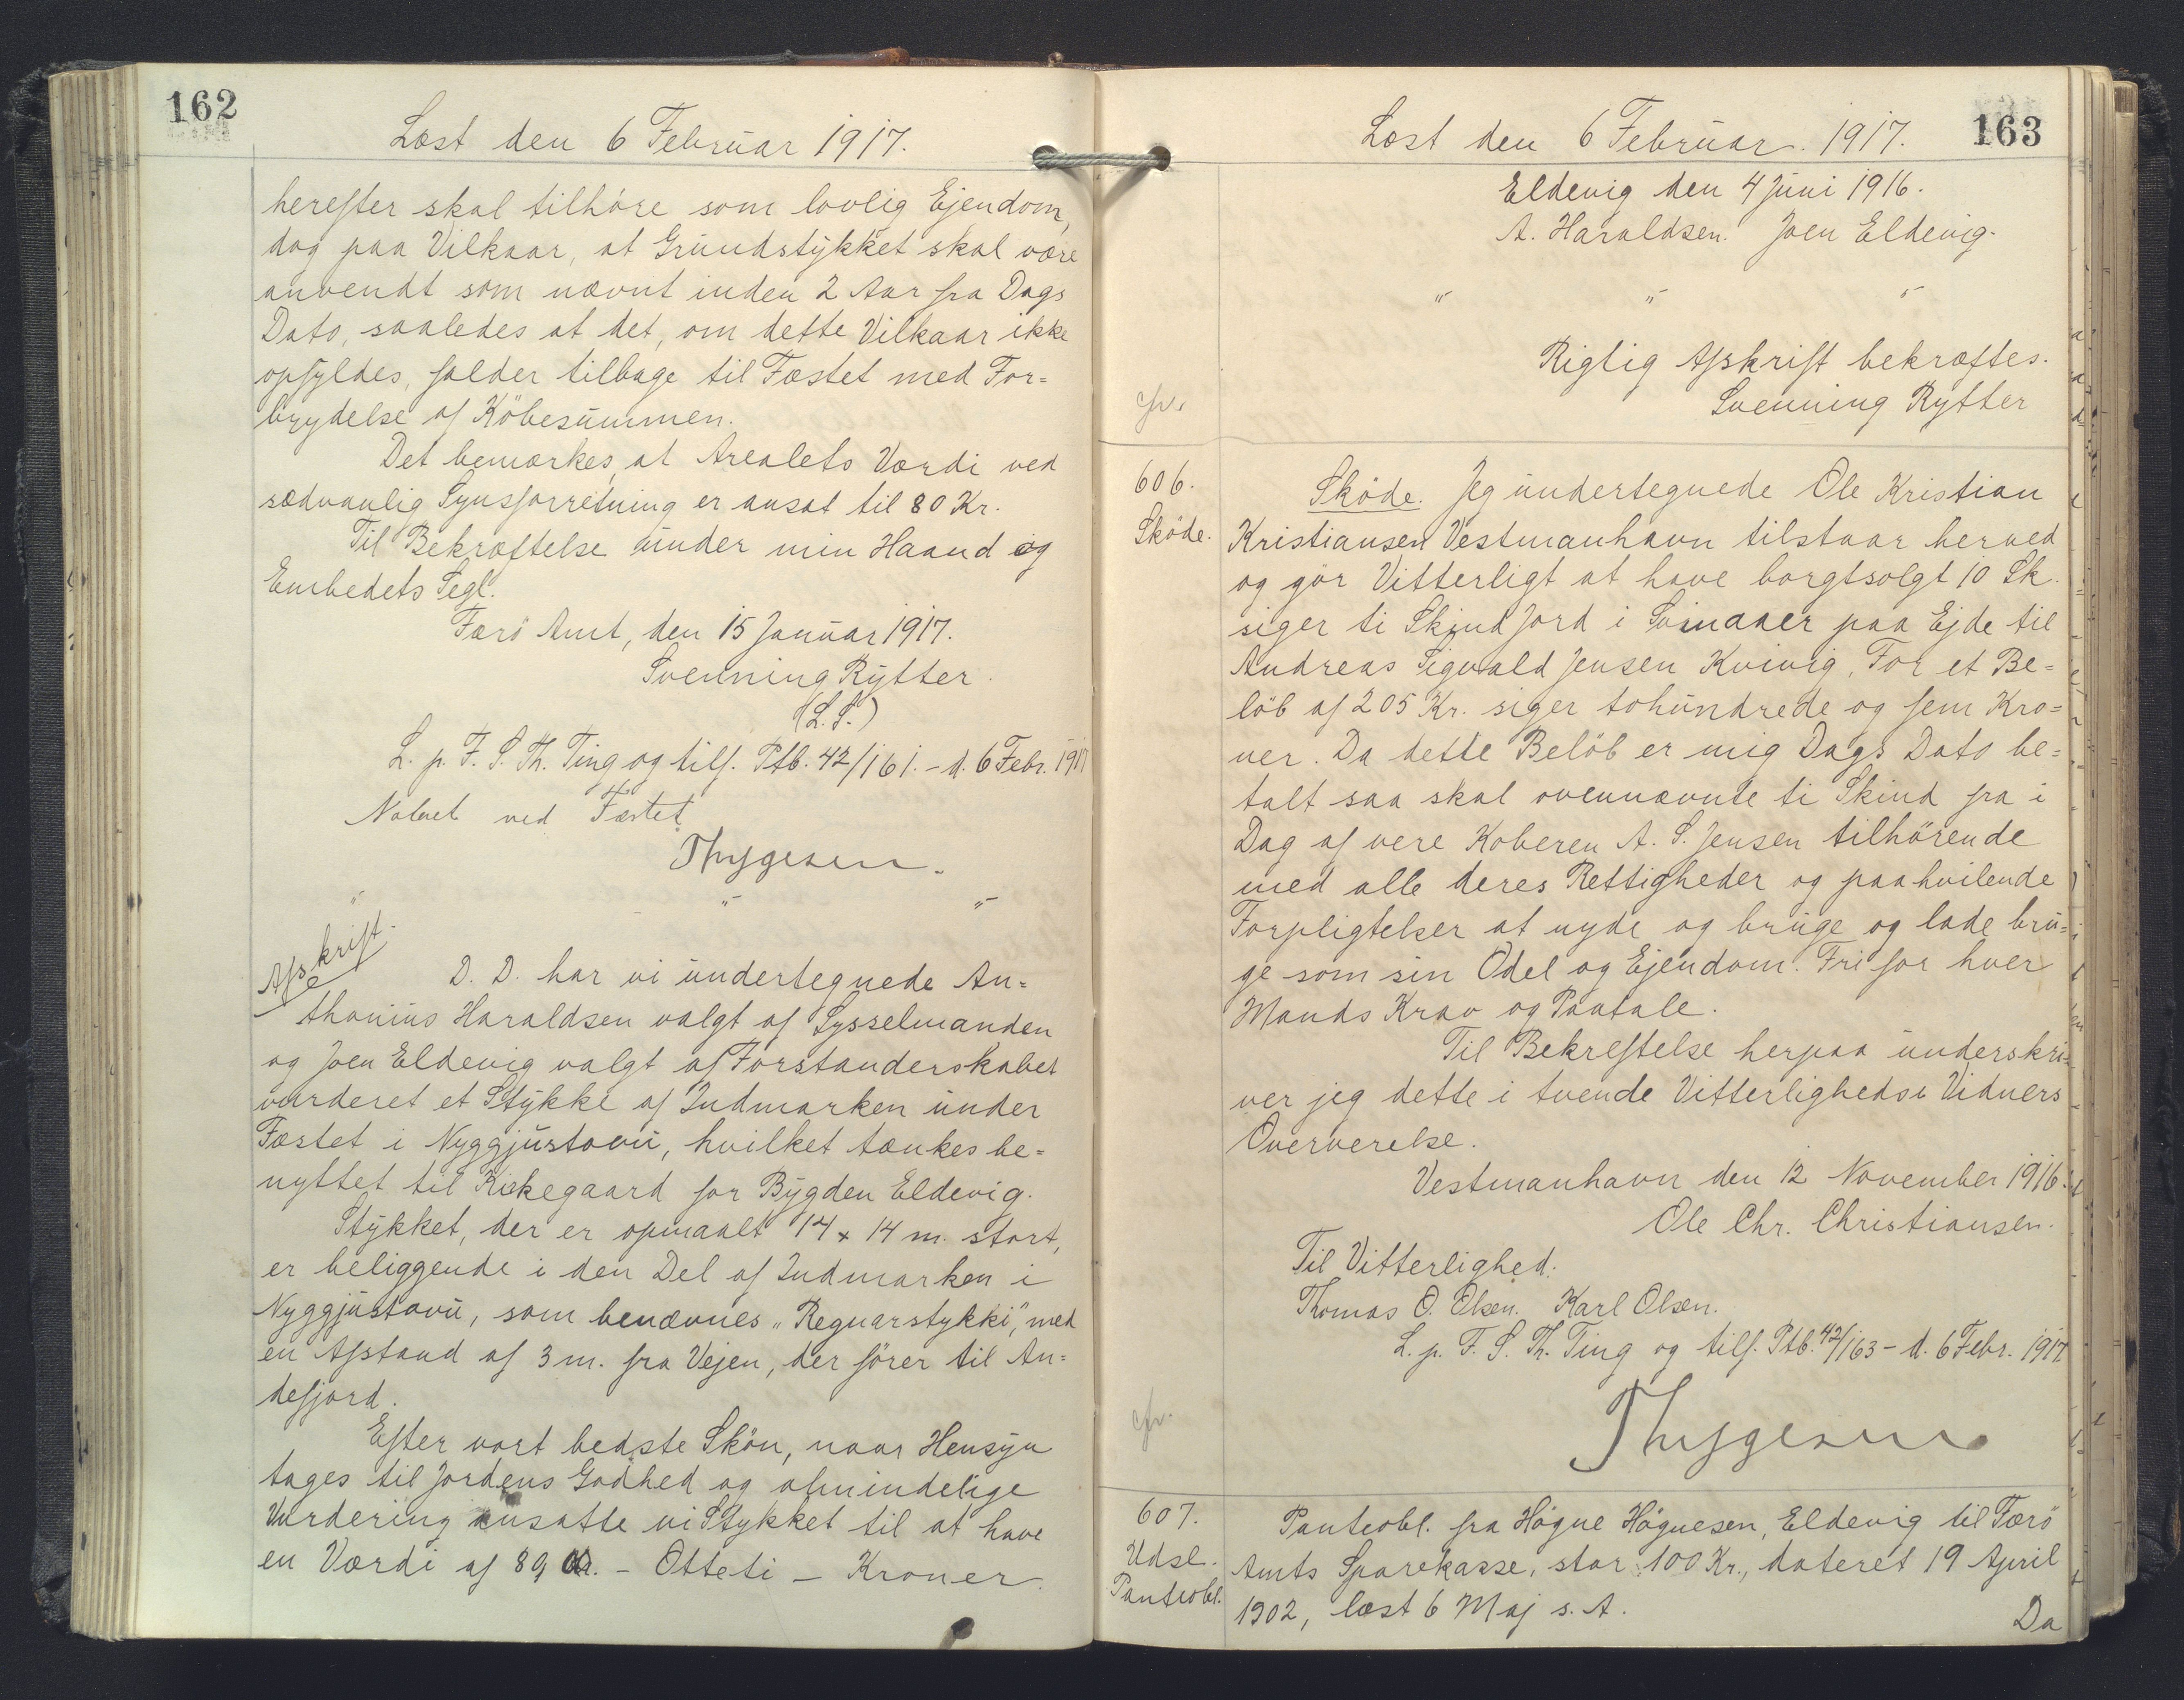 162
Læst den 6 Februar 1917.
herefter skal tilhøre som lovlig Ejendom,
dog paa Vilkaar, at Grundstykket skal være
anvendt som nævnt inden 2 Aar fra Dags
Dato, saaledes at det, om dette Vilkaar ikke
opfyldes, falder tilbage til Fæstet med For=
brydelse af Köbesummen.
Det bemærkes, at Arealets Værdi ved
sædvanlig Synsforretning er ansat til 80 Kr.
Til Bekræftelse under min Haand og
Embedets Segl.
Færö Amt, den 15 Januar 1917.
Svenning Rytter.
(L.S.)
L. p. F. S. Th. Ting og tilf. Ptb. 42/161. - d. 6 Febr. 1917
Noteret ved Fæstet
Thygesen.
" " "
Afskrift.
D. D. har vi undertegnede An=
thonius Haraldsen valgt af Sysselmanden
og Joen Eldevig valgt af Forstanderskabet
vurderet et Stykke af Indmarken under
Fæstet i Nyggjustovu, hvilket tænkes be=
nyttet til Kirkegaard for Bygden Eldevig.
Stykket, der er opmaalt 14 x 14 m. stort,
er beliggende i den Del af Indmarken i
Nyggjustovu, som benævnes „Regnarstykki", med
en Afstand af 3 m. fra Vejen, der förer til An=
defjord.
Efter vort bedste Skön, naar Hensyn
tages til Jordens Godhed og almindelige
Vurdering ansatte vi Stykket til at have
en Værdi af 80 Kr. - Otteti - Kroner.
163
Læst den 6 Februar. 1917.
Eldevig den 4 Juni 1916.
A. Haraldsen. Joen Eldevig.
" " "
Rigtig Afskrift bekræftes.
Svenning Rytter
cfr.
606.
Sköde.
Sköde. Jeg undertegnede Ole Kristian
Kristiansen Vestmanhavn tilstaar herved
og gör Vitterligt at have bortsolgt 10 Sk.
siger ti Skind Jord i Svinaaer paa Ejde til
Andreas Sigvald Jensen Kvivig, For et Be=
löb af 205 Kr. siger tohundrede og fem Kro=
ner. Da dette Belöb er mig Dags Dato be=
talt saa skal ovennævnte ti Skind fra i
Dag af vere Koberen A. S. Jensen tilhörende
med alle deres Rettigheder og paahvilende
Forpligtelser at nyde og bruge og lade bru=
ge som sin Odel og Ejendom. Fri for hver
Mands Krav og Paatale.
Til Bekreftelse herpaa underskri=
ver jeg dette i tvende Vitterligheds Vidners
Oververelse.
Vestmanhavn den 12 November 1916.
Ole Chr. Christiansen.
Til Vitterlighed:
Thomas O. Olsen. Karl Olsen.
L. p. F. S. Th. Ting og tilf. Ptb. 42/163 - d. 6 Febr. 1917
Thygesen
cfr.
607.
Udsl.
Panteobl.
Panteobl. fra Högne Högnesen, Eldevig til Færö
Amts Sparekasse, stor 100 Kr., dateret 19 April
1902, læst 6 Maj s. A.
Da